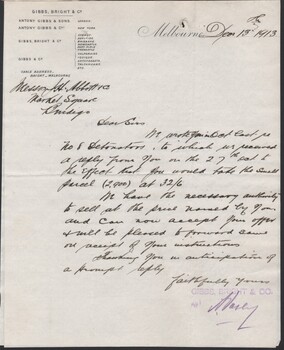 GIBBS, BRIGHT & CO
ANTONY GIBBS & SONS LONDON
ANTONY GIBBS & CO NEW YORK
GIBBS, BRIGHT & CO
GIBBS & CO
CABLE ADDRESS,
BRIGHT, MELBOURNE
Melbourne, 1913
Messrs J. H. Abbott & Co
Market Square
Bendigo
Dear Sirs
We wrote you
No 8 Detonators to which we received
a reply from you on the 27th ult to
the effect that you would take the small
parcel (2,900) at 32/6
We have the necessary authority
to sell at the price named by you
and can now accept your offer
& will be pleased to forward same
on receipt of your instructions
Thanking you in anticipation of
a prompt reply
faithfully yours
GIBBS, BRIGHT & CO.